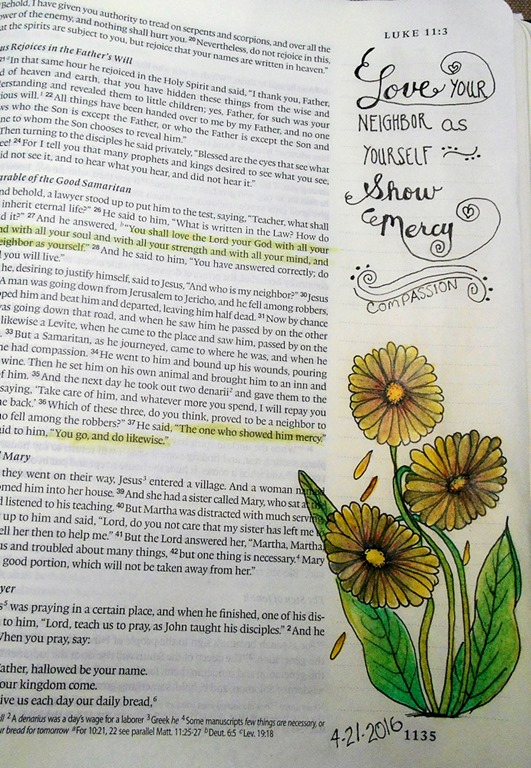 LUKE 11:3
Behold, I have given you authority to tread on serpents and scorpions, and over all
power of the enemy, and nothing shall hurt you. 20 Nevertheless, do not rejoice in this,
at the spirits are subject to you, but rejoice that your names are written in heaven."
us Rejoices in the Father's Will
21 "In that same hour he rejoiced in the Holy Spirit and said, "I thank you, Father,
d of heaven and earth, that you have hidden these things from the wise and
erstanding and revealed them to little children; yes, Father, for such was your
ious will. 22 All things have been handed over to me by my Father, and no one
ws who the Son is except the Father, or who the Father is except the Son and
ne to whom the Son chooses to reveal him."
Then turning to the disciples he said privately, "Blessed are the eyes that see what
ee! 24 For I tell you that many prophets and kings desired to see what you see,
did not see it, and to hear what you hear, and did not hear it."
arable of the Good Samaritan
nd behold, a lawyer stood up to put him to the test, saying, "Teacher, what shall
inherit eternal life?" 26 He said to him, "What is written in the Law? How do
d it?" 27 And he answered, "You shall love the Lord your God with all your
nd with all your soul and with all your strength and with all your mind, and
eighbor as yourself." 28 And he said to him, "You have answered correctly; do
d you will live."
he, desiring to justify himself, said to Jesus, "And who is my neighbor?" 30 Jesus
A man was going down from Jerusalem to Jericho, and he fell among robbers,
pped him and beat him and departed, leaving him half dead. 31 Now by chance
was going down that road, and when he saw him he passed by on the other
likewise a Levite, when he came to the place and saw him, passed by on the
. 33 But a Samaritan, as he journeyed, came to where he was, and when he
he had compassion. 34 He went to him and bound up his wounds, pouring
wine. Then he set him on his own animal and brought him to an inn and
of him. 35 And the next day he took out two denarii2 and gave them to the
saying, 'Take care of him, and whatever more you spend, I will repay you
e back.' 36 Which of these three, do you think, proved to be a neighbor to
o fell among the robbers?" 37 He said, "The one who showed him mercy."
aid to him, "You go, and do likewise."
d Mary
they went on their way, Jesus3 entered a village. And a woman named
omed him into her house. 39 And she had a sister called Mary, who sat at the
d listened to his teaching. 40 But Martha was distracted with much serving
up to him and said, "Lord, do you not care that my sister has left me to
ell her then to help me." 41 But the Lord answered her, "Martha, Martha,
us and troubled about many things, 42 but one thing is necessary.4 Mary
good portion, which will not be taken away from her."
yer
s5 was praying in a certain place, and when he finished, one of his dis-
to him, "Lord, teach us to pray, as John taught his disciples." 2 And he
When you pray, say:
ather, hallowed be your name.
our kingdom come.
ive us each day our daily bread,6
ll 2 A denarius was a day's wage for a laborer 3 Greek he 4 Some manuscripts few things are necessary, or
ur bread for tomorrow a For 10:21, 22 see parallel Matt. 11:25-27 b Deut. 6:5 c Lev. 19:18
Love YOUR
NEIGHBOR as
YOURSELF
Show
Mercy
COMPASSION
4-21-2016
1135